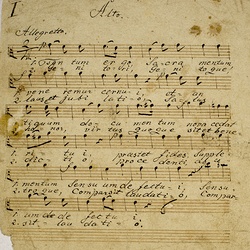 I
Alto.
Allegretto.
1. Tantum ergo Sacramentum,
2. Genitori Genitoque,
pone remur cernui, et an
2. laus et jubilatio, Salus
tiquum documentum novo cedat
honor, virtus quoque sit et bene
ri tui, praestet fides supple-
2. dictio, procedenti
1. mentum Sensuum defectui, Sensu
2. troque, Compar sit laudatio, Compar
1. um defectui.
2. sit laudatio.